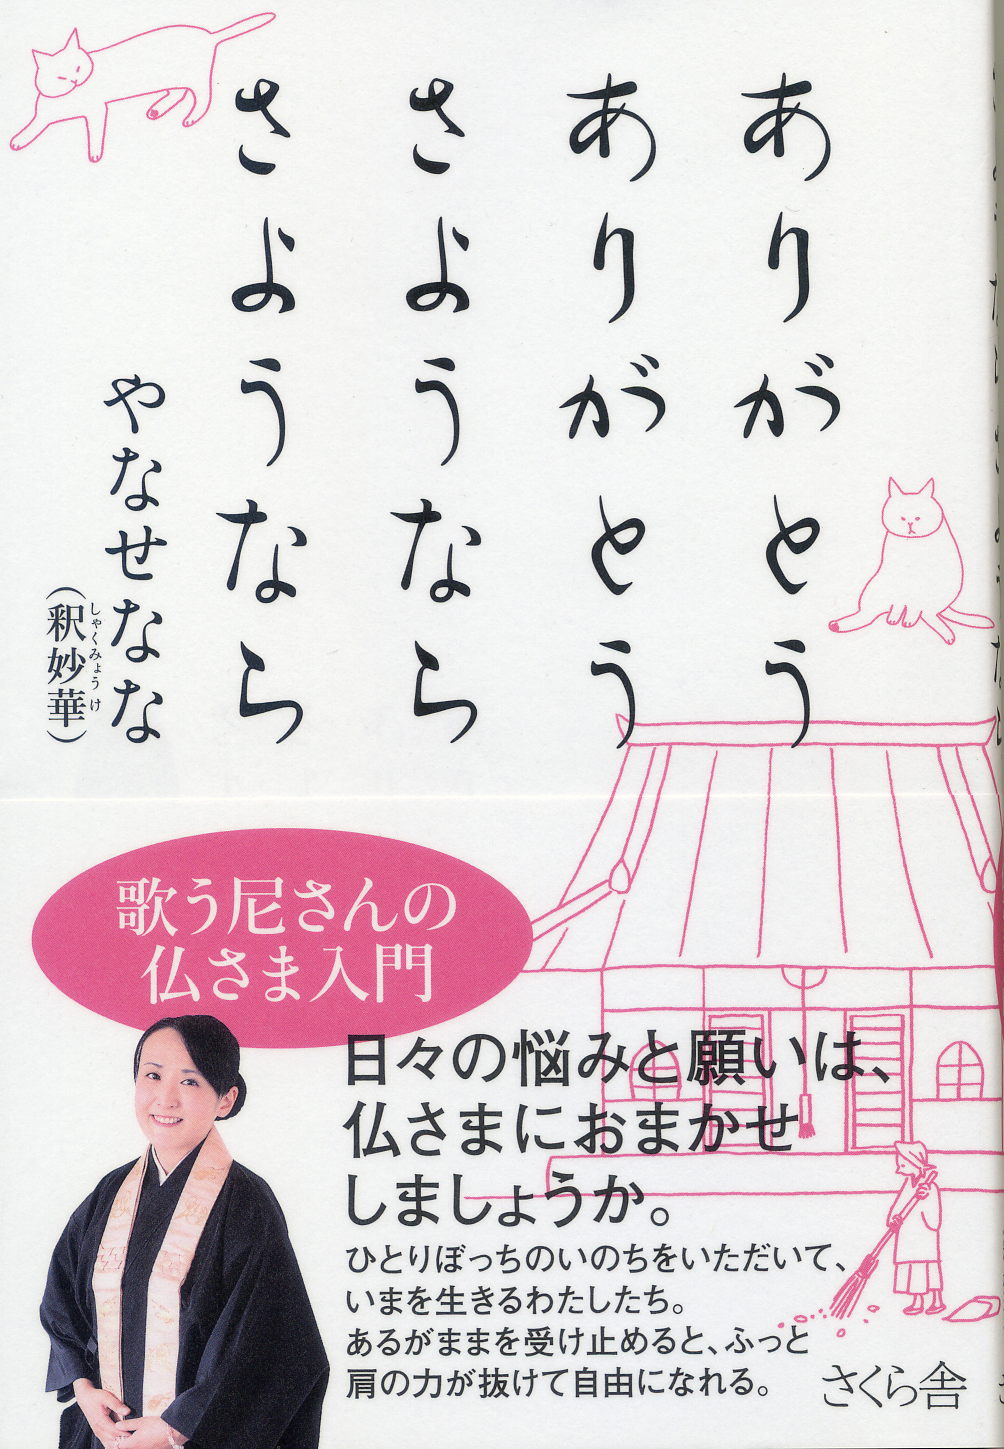 ありがとう
ありがとう
さようなら
さようなら
やなせなな
(釈妙華)
しゃくみょうけ
歌う尼さんの
仏さま入門
日々の悩みと願いは、
仏さまにおまかせ
しましょうか。
ひとりぼっちのいのちをいただいて、
いまを生きるわたしたち。
あるがままを受け止めると、ふっと
肩の力が抜けて自由になれる。
さくら舎